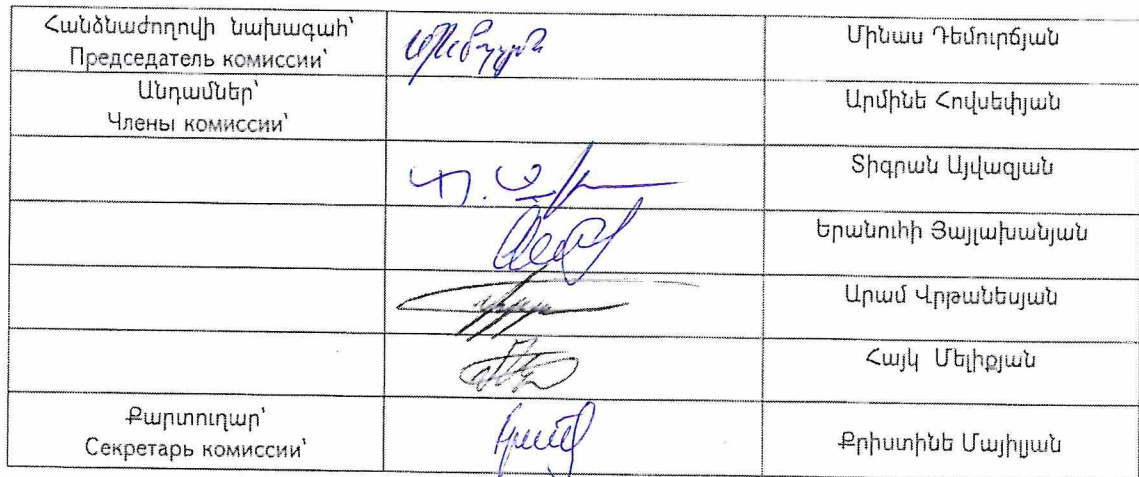 Հանձնաժողովի նախագահ՝
Председатель комиссии՝
Մինաս Դեմուրճյան
Անդամներ՝
Члены комиссии՝
Արմինե Հովսեփյան
Տիգրան Այվազյան
Երանուհի Յայլախանյան
Արամ Վրթանեսյան
Հայկ Մելիքյան
Քարտուղար՝
Секретарь комиссии՝
Քրիստինե Մայիլյան